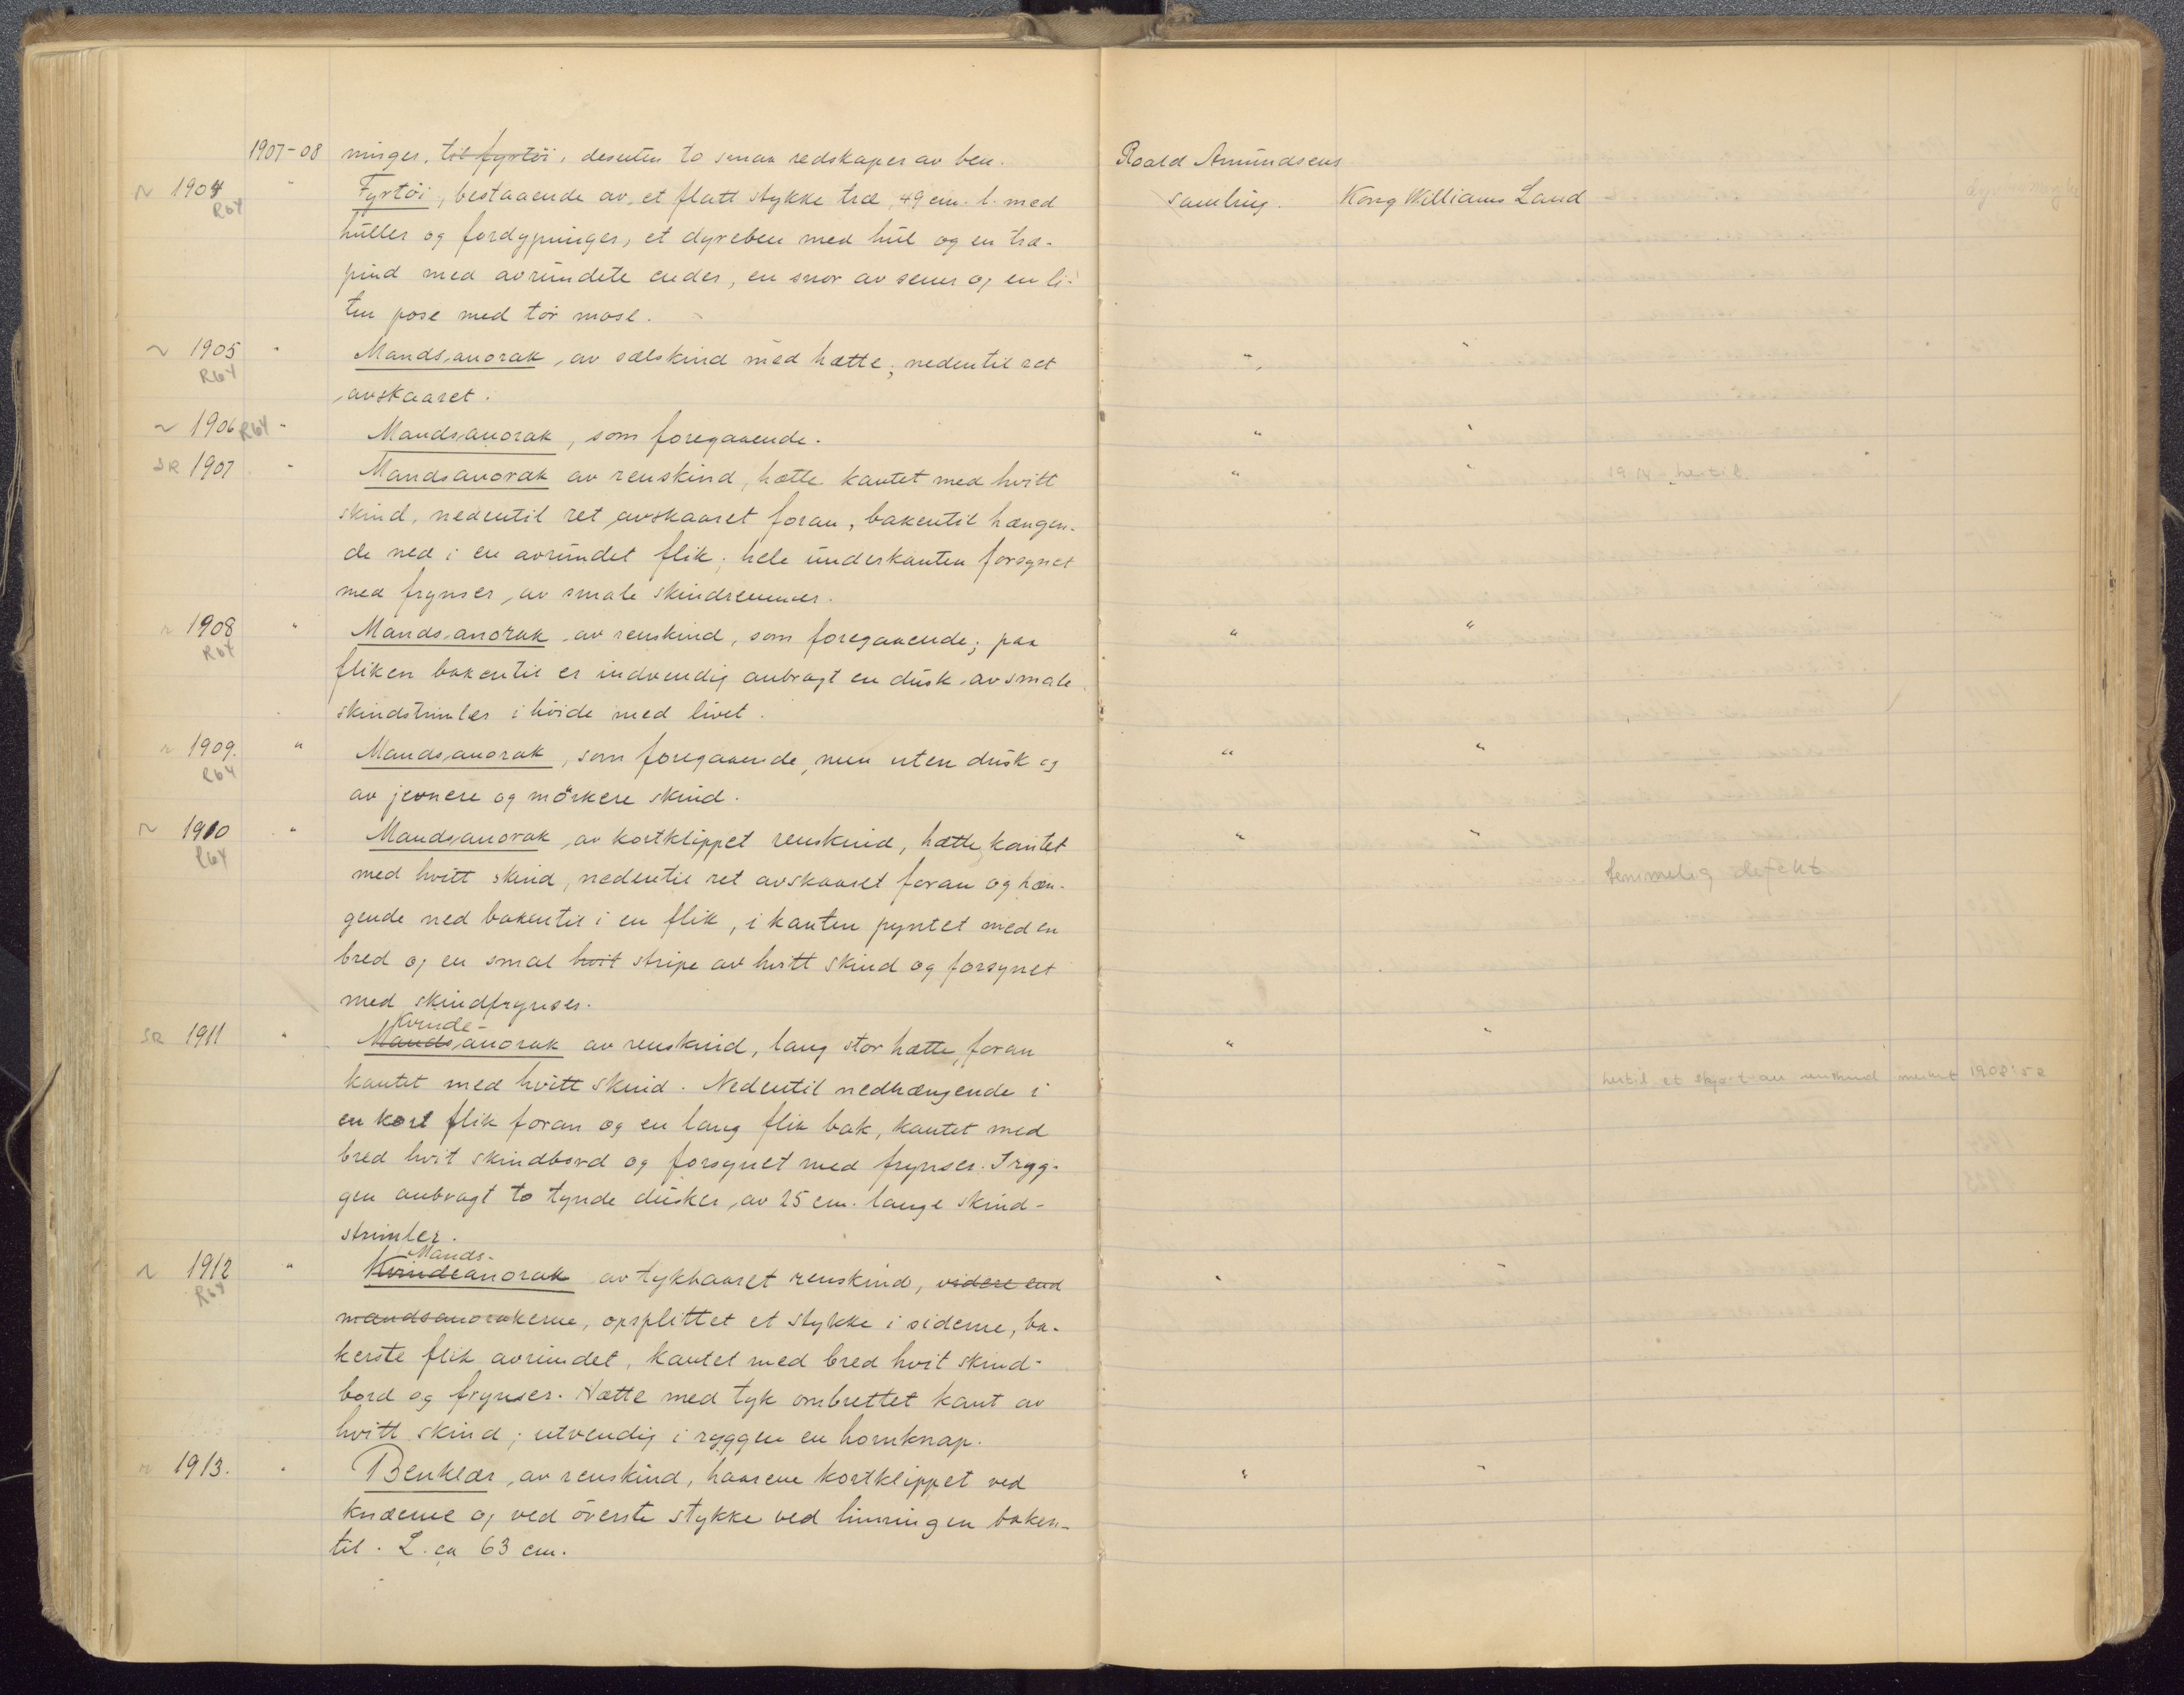 1907-08 ninger, til fyrtöi, desuten to smaa redskaper av ben. Roald Amundsens
N 1904 " Fyrtöi, bestaaende av et flatt stykke træ, 49 cm. l. med samling. Kong Williams Land
R64
huller og fordypninger, et dyreben med hul og en træ-
pind med avrundete ender, en snor av sener og en li-
ten pose med tör mose.
N 1905 " Mandsanorak, av sælskind med hætte; nedentil ret " "
R64
avskaaret.
N 1906 R64 " Mandsanorak, som foregaaende. " "
SR 1907 " Mandsanorak av renskind, hætte kantet med hvitt " " 1914 hertil
skind, nedentil ret avskaaret foran, bakentil hængen-
de ned i en avrundet flik; hele underkanten forsynet
med frynser, av smale skindremmer.
N 1908 " Mandsanorak, av renskind, som foregaaende; paa " "
R64
fliken bakentil er indvendig anbragt en dusk av smale
skindstrimler i höide med livet.
N 1909. " Mandsanorak, som foregaaende, men uten dusk og " "
R64
av jevnere og mörkere skind.
N 1910 " Mandsanorak, av kortklippet renskind, hætte kantet " "
R64
med hvitt skind, nedentil ret avskaaret foran og hæn- temmelig defekt
gende ned bakentil i en flik, i kanten pyntet med en
bred og en smal hvit stripe av hvitt skind og forsynet
med skindfrynser.
Kvinde-
SR 1911 " Mandsanorak av renskind, lang stor hætte, foran " "
kantet med hvitt skind. Nedentil nedhængende i hertil et skjørt av renskind merket 1908:52
en kort flik foran og en lang flik bak, kantet med
bred hvit skindbord og forsynet med frynser. I ryg-
gen anbragt to tynde dusker, av 25 cm. lange skind-
strimler.
Mands-
N 1912 " Kvindeanorak av tykhaaret renskind, videre end " "
R64
mandsanorakerne, opsplittet et stykke i siderne, ba-
kerste flik avrundet, kantet med bred hvit skind-
bord og frynser. Hætte med tyk ombrettet kant av
hvitt skind; utvendig i ryggen en hornknap.
N 1913. " Benklær, av renskind, haarene kortklippet ved " "
knæerne og ved överste stykke ved linningen baken-
til. L. ca 63 cm.